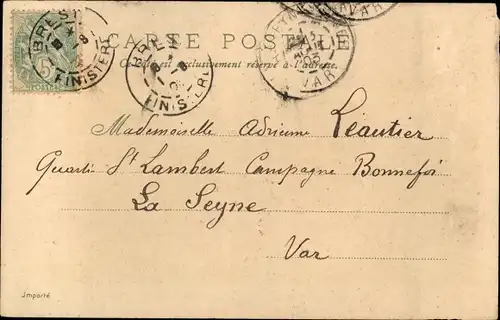 CARTE POSTALE
Ce côté est exclusivement réservé à l'adresse.
BREST
FINISTERE
BREST
FINISTERE
VAR
VAR
5
POSTES
Mademoiselle Adrienne Léautier
Quartier St Lambert Campagne Bonnefoi
La Seyne
Var
Importé